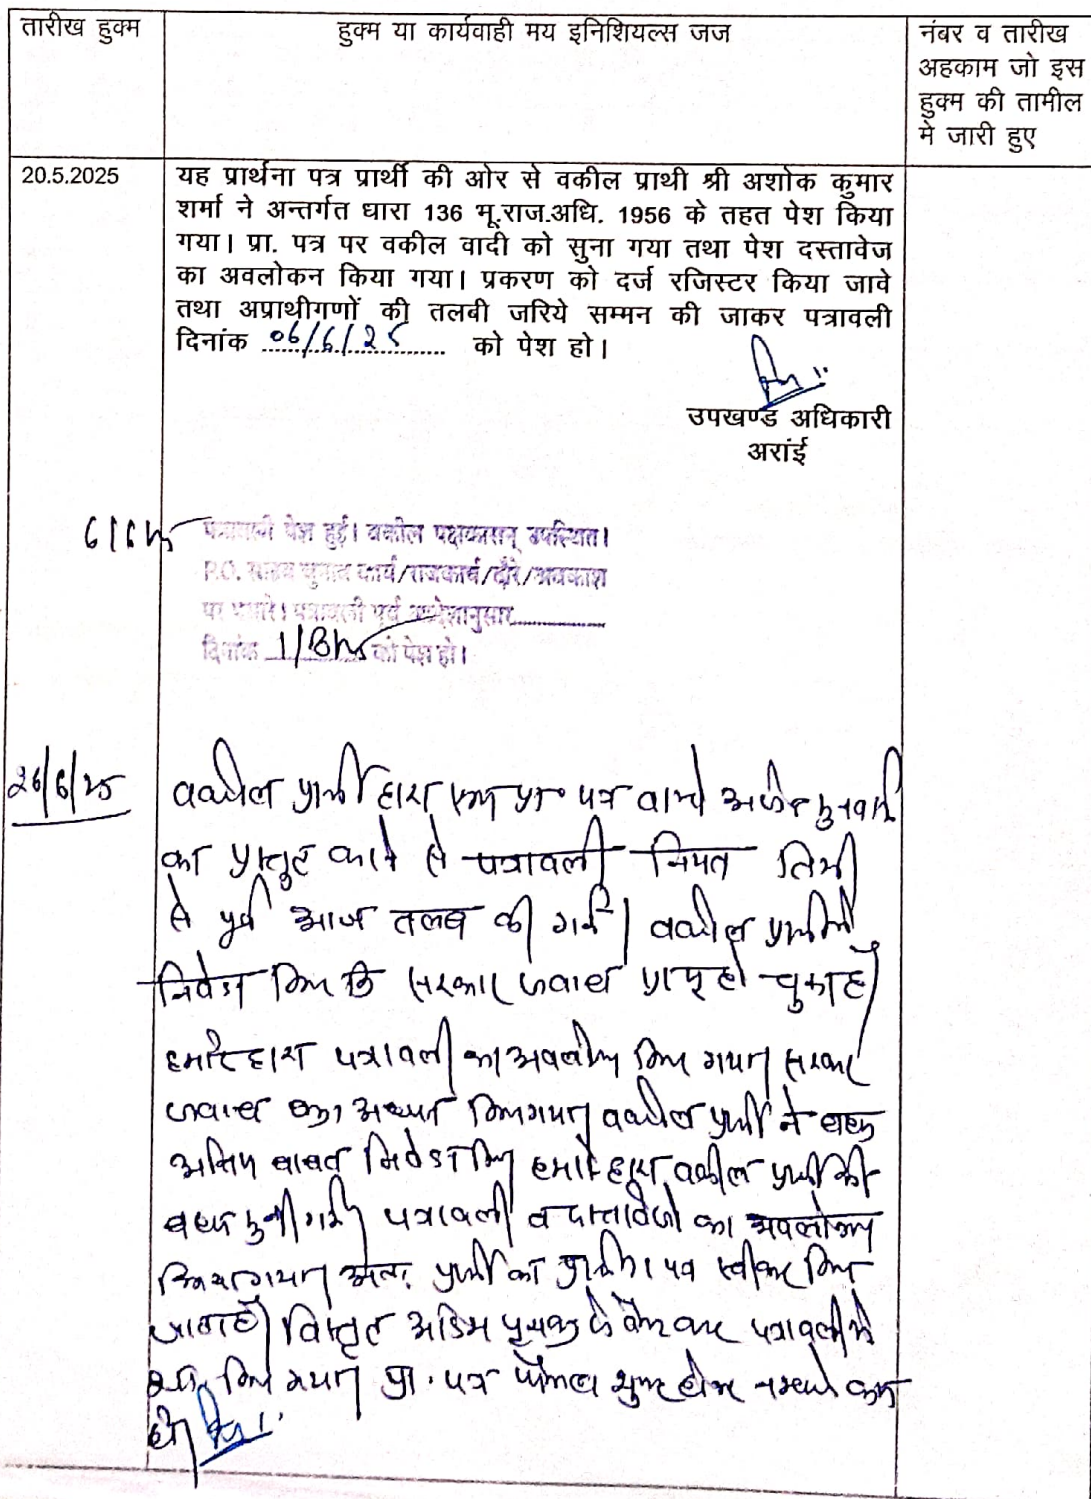 तारीख हुक्म
हुक्म या कार्यवाही मय इनिशियल्स जज
नंबर व तारीख
अहकाम जो इस
हुक्म की तामील
मे जारी हुए
20.5.2025
यह प्रार्थना पत्र प्रार्थी की ओर से वकील प्राथी श्री अशोक कुमार
शर्मा ने अन्तर्गत धारा 136 भू.राज.अधि. 1956 के तहत पेश किया
गया। प्रा. पत्र पर वकील वादी को सुना गया तथा पेश दस्तावेज
का अवलोकन किया गया। प्रकरण को दर्ज रजिस्टर किया जावे
तथा अप्राथीगणों की तलबी जरिये सम्मन की जाकर पत्रावली
दिनांक 06/6/25 को पेश हो।
उपखण्ड अधिकारी
अरांई
6/6/25 पत्रावली पेश हुई। वकील पक्षकारान् उपस्थित।
P.O. चुनाव कार्य/राजकार्य/दौरे/अवकाश
पर पत्रावली पूर्व आदेशानुसार
दिनांक को पेश हो।
26/6/25
वकील प्रार्थी द्वारा एक प्रा. पत्र वास्ते सुनवाई
का प्रस्तुत करने से पत्रावली नियत तिथी
से पूर्व आज तलब की गई। वकील प्रार्थी ने
निवेदन किया कि सरकार जवाब प्राप्त हो चुका है
हमारे द्वारा पत्रावली का अवलोकन किया गया। सरकार
जवाब का अध्ययन किया गया। वकील प्रार्थी ने बहस
अन्तिम बाबत निवेदन किया हमारे द्वारा वकील प्रार्थी की
बहस सुनी गई। पत्रावली व दस्तावेजो का अवलोकन
किया गया। अतः प्रार्थी का प्रार्थना पत्र स्वीकार किया
जाता है। विस्तृत पृथक से पत्रावली मे
किया गया। प्रा. पत्र फैसला शुमार होकर नम्बर से कम
हो।